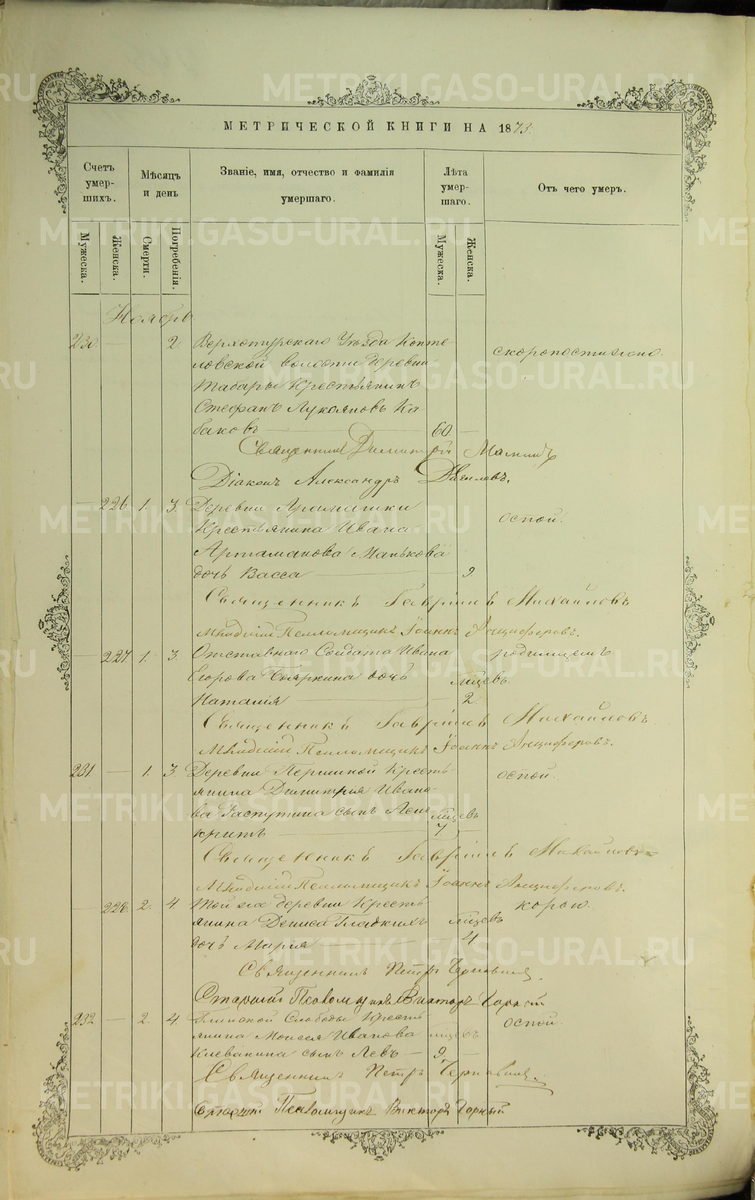 METRIKI.GASO-URAL.RU
МЕТРИЧЕСКОЙ КНИГИ НА 1873.
Счетъ умер-шихъ.
Мѣсяцъ и день
Званіе, имя, отчество и фамилія умершаго.
Лѣта умер-шаго.
Отъ чего умеръ.
Мужеска.
Женска.
Смерти.
Погребенія.
Мужеска.
Женска.
Ноябрь
230 — 2. Верхотурскаго Уѣзда Копте-
ловской волости деревни скоропостижно.
Крестьянинъ
Стефанъ Лукояновъ Ка-
баковъ — 60 —
Священникъ Димитрій
Діаконъ Александръ
— 226. 1. 3. Деревни
Крестьянина Ивана оспой.
Артамонова Манькова
дочь Васса — 9
Священникъ Гавріилъ Михайловъ
Младшій Псаломщикъ Іоаннъ Анциферовъ.
— 227 1. 3. Отставнаго Солдата Ивана родимцемъ
Егорова дочь мѣцевъ
Наталія — 2.
Священникъ Гавріилъ Михайловъ
Младшій Псаломщикъ Іоаннъ Анциферовъ.
231 — 1. 3. Деревни Першиной Кресть-
янина Димитрія Ивано- оспой.
ва Распутина сынъ мѣцевъ
7
Священникъ Гавріилъ Михайловъ
Младшій Псаломщикъ Іоаннъ Анциферовъ.
— 228. 2. 4 Той же деревни Кресть- корью.
янина Дениса Гладкихъ мѣцевъ
дочь Марія — 4
Священникъ Петръ
Старшій Псаломщикъ Викторъ Горный
232 — 2. 4. Слободы Кресть- оспой.
янина Моисея Иванова мѣцевъ
Клевакина сынъ Левъ — 9.
Священникъ Петръ
Старшій Псаломщикъ Викторъ Горный